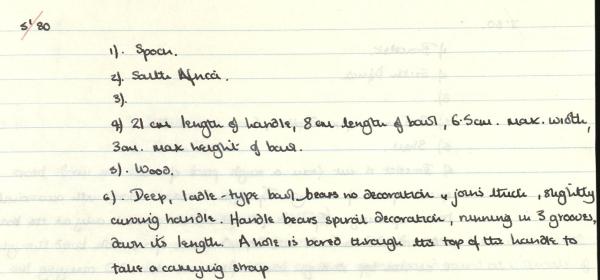 5'80
1). Spoon.
2). South Africa.
3).
4) 21 cm length of handle, 8cm length of bowl, 6.5cm. max. width,
3cm. max height of bowl.
5). Wood.
6). Deep, ladle-type bowl bears no decoration & joins thick, slightly
curving handle. Handle bears spiral decoration, running in 3 grooves,
down its length. A hole is bored through the top of the handle to
take a carrying strap